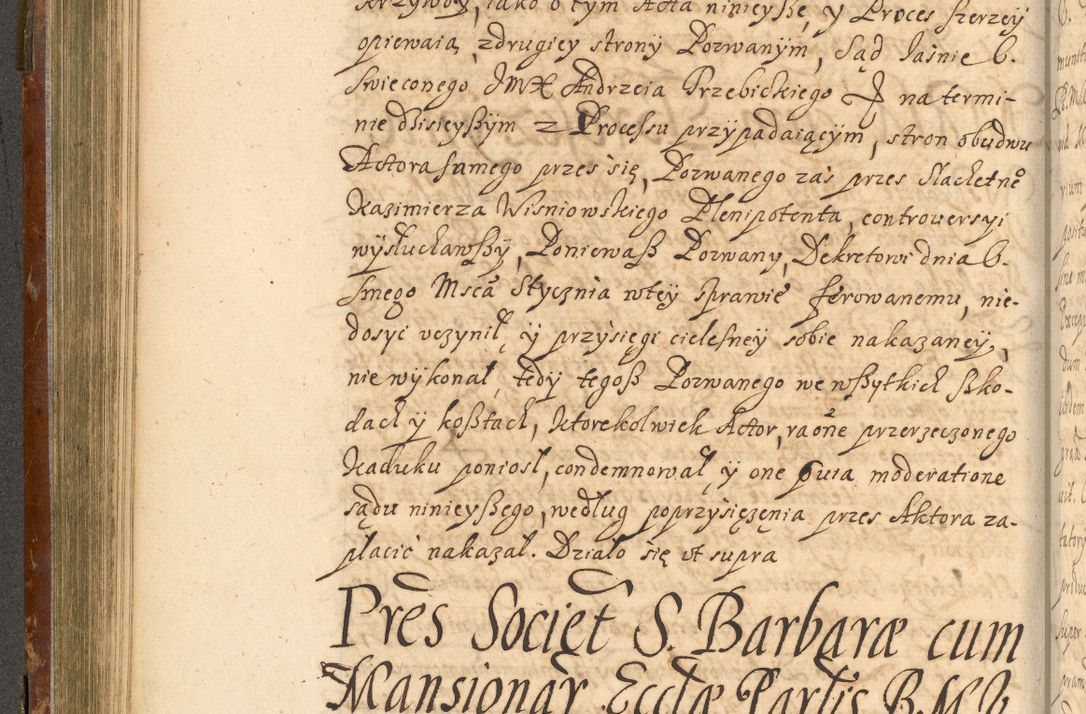 krzywdy, iako o tym Acta ninieyße, y Proces szerzey
opiewaią, zdrugiey strony Pozwanym, Sąd Jaśnie O.
świeconego JMX Andrzeia Trzebickiego na termi-
nie dzisieyßym z Processu przypadaiącym, stron obudwu
Actora samego przes się, Pozwanego zaś przes Slachetne°
Kazimierza Wisniowskiego Plenipotenta, controuersyi
wysłuchawßy, Poniewaß Pozwany, Dekretowi dnia O-
smego Msca Stycznia wtey sprawie ferowanemu, nie-
dosyć uczynił, y przysięgi cielesney sobie nakazaney,
nie wykonał, tedy tegoß Pozwanego we wßytkich ßko-
dach y koßtach, ktorekolwiek Actor, raõne przerzeczonego
Kaduku poniosł, condemnował y one quia moderatione
sądu ninieyßego, według poprzysięzenia przes Aktora za-
płacić nakazał. Działo się ut supra
Pres Societ S. Barbaræ cum
Mansionar Eccłæ Parlis B.M.V.